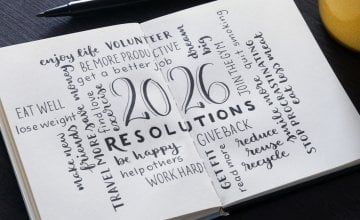 enjoy life
VOLUNTEER
BE MORE PRODUCTIVE
get a better job
dream big
JOIN THE GYM
quit smoking
STOP PROCRASTINATING
eat less meat
smile more
EAT WELL
lose weight
make new friends
save money
find love
exercise
TRAVEL MORE
2026
RESOLUTIONS
be happy
help others
WORK HARD
GIVE BACK
GET FIT
read more
reduce
reuse
recycle